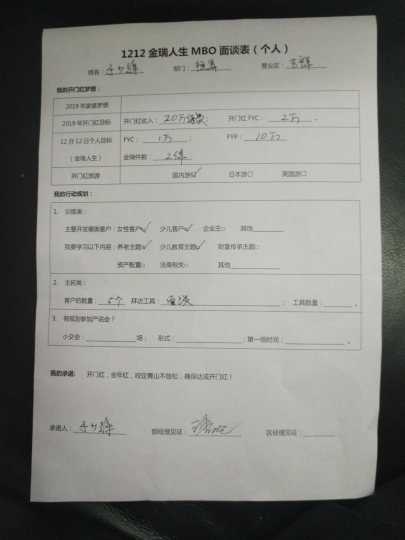 1212 金瑞人生 MBO 面谈表（个人）
姓名： 部门： 营业区：吉祥
我的开门红梦想：
2019 年家庭梦想
2019 年开门红目标 开门红收入：20万 开门红 FYC：2万 。
12 月 12 日个人目标 FYC：1万 ； FYP：10万
（金瑞人生） 金瑞件数：2件
开门红旅游 国内游☑ 日本游□ 英国游□
我的行动规划：
1. 训练类：
主要开发哪类客户：女性客户☑ 少儿客户☑ 企业主□ 其他________
我要学习以下内容：养老主题☑ 少儿教育主题☑ 财富传承主题□
资产配置□ 法商相关□ 其他________
2. 主拓类：
客户的数量：5个 拜访工具：面谈 ；工具数量：______。
3. 有规划参加产说会？
小交会：________场； 形式：________；第一场时间：________。
我的承诺：开门红，金年红，咬定青山不放松，确保达成开门红！
承诺人： 部经理见证： 区经理见证：______